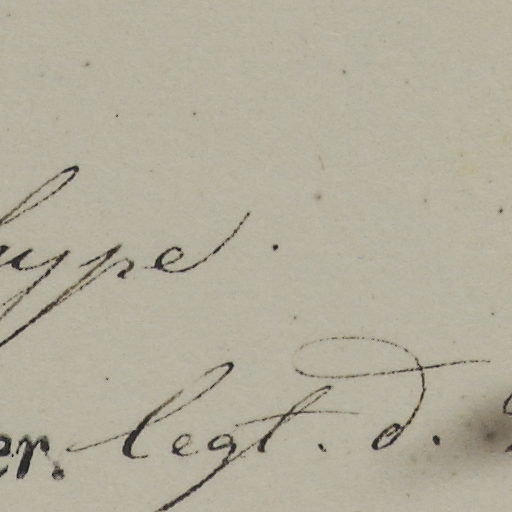 ype.
er. legt. d.